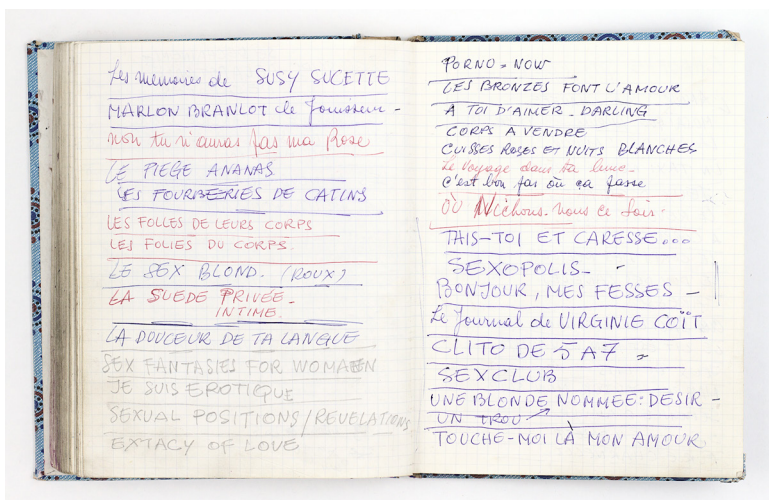 Les memoires de SUSY SUCETTE
MARLON BRANLOT le Jouisseur -
non tu n'auras pas ma Rose
LE PIEGE ANANAS
LES FOURBERIES DE CATINS
LES FOLLES DE LEURS CORPS
LES FOLIES DU CORPS.
LE SEX BLOND. (ROUX)
LA SUEDE PRIVÉE -
INTIME.
LA DOUCEUR DE TA LANGUE
SEX FANTASIES FOR WOMAEEN
JE SUIS EROTIQUE
SEXUAL POSITIONS/REVELATIONS
EXTACY OF LOVE
PORNO = NOW
LES BRONZES FONT L'AMOUR
A TOI D'AIMER - DARLING
CORPS A VENDRE
CUISSES ROSES ET NUITS BLANCHES
Le Voyage dans ta lune -
c'est bon par où ça passe
OÙ Nichons-nous ce soir -
THIS-TOI ET CARESSE...
SEXOPOLIS -
BONJOUR, MES FESSES -
Le Journal de VIRGINIE COÏT
CLITO DE 5 A 7 -
SEXCLUB
UNE BLONDE NOMMEE: DESIR -
UN TROU
TOUCHE-MOI LÀ MON AMOUR